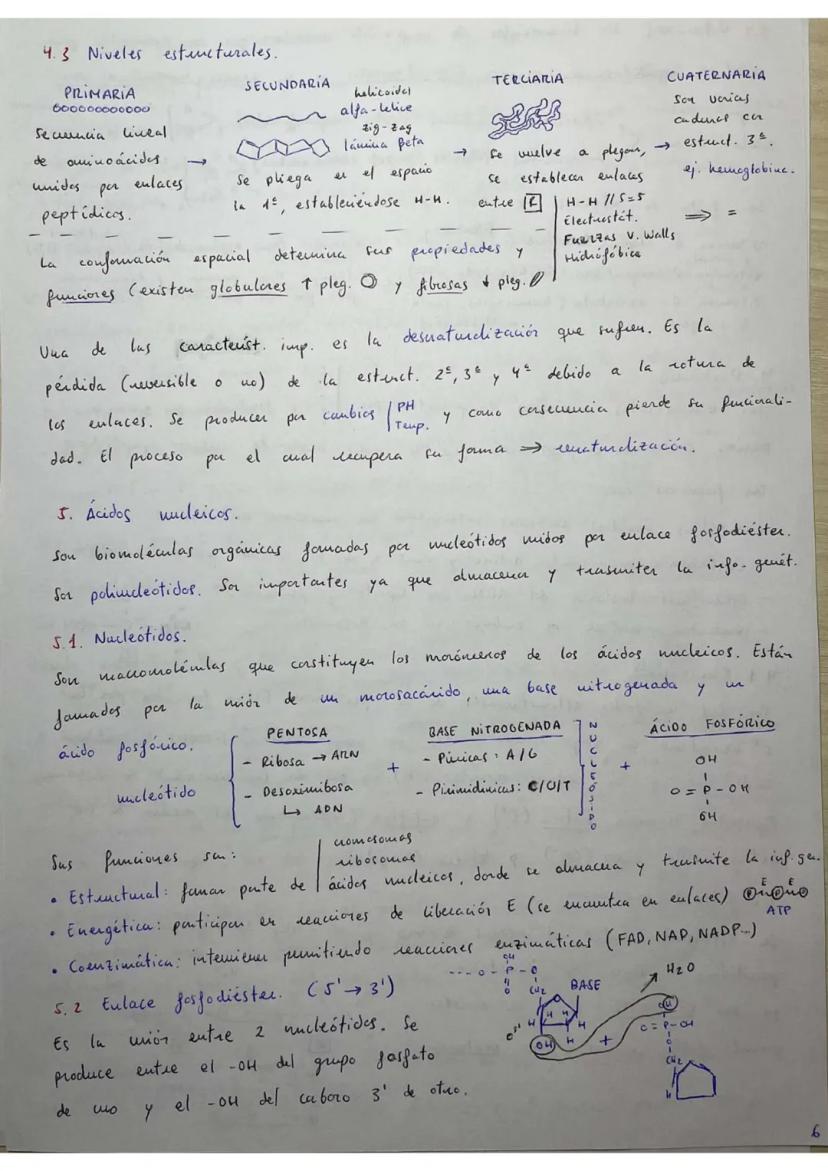 4.3 Niveles estructurales.
PRIMARIA
Secuencia lineal
de aminoácidos →
unidos por enlaces
peptídicos.
SECUNDARIA
helicoidal
alfa-hélice
zig-zag
lámina Beta
Se pliega en el espacio
la 1ª, estableciéndose H-H.
→
TERCIARIA
Se vuelve a plegar, →
se establecen enlaces
entre R
H-H // S=S
Electrostát.
Fuerzas V. Walls
Hidrófóbica
CUATERNARIA
Son varias
cadenas con
estruct. 3ª.
ej. hemoglobina.
⇒ =
La conformación espacial determina sus propiedades y
funciones (existen globulares ↑ pleg. y fibrosas ↓ pleg.
Una de las característ. imp. es la desnaturalización que sufren. Es la
pérdida (reversible o no) de la estruct. 2ª, 3ª y 4ª debido a la rotura de
los enlaces. Se producen por cambios PH
Temp. y como consecuencia pierde su funcionali-
dad. El proceso por el cual recupera su forma ⇒ renaturalización.
5. Ácidos nucleicos.
Son biomoléculas orgánicas formadas por nucleótidos unidos por enlace fosfodiéster.
Son polinucleótidos. Son importantes ya que almacenan y trasmiten la info. genét.
5.1. Nucleótidos.
Son macromoléculas que constituyen los monómeros de los ácidos nucleicos. Están
formados por la unión de un monosacárido, una base nitrogenada y un
ácido fosfórico.
nucleótido
PENTOSA
- Ribosa → ARN
- Desoxirribosa
↳ ADN
+
BASE NITROGENADA
- Púricas: A/G
- Pirimidínicas: C/U/T
NUCLEÓSIDO
+
ÁCIDO FOSFÓRICO
OH
O = P - OH
OH
Sus funciones son:
cromosomas
ribosomas
• Estructural: forman parte de ácidos nucleicos, donde se almacena y trasmite la inf. gen.
• Energética: participan en reacciones de liberación E (se encuentra en enlaces)
E E
ATP
• Coenzimática: intervienen permitiendo reacciones enzimáticas (FAD, NAP, NADP...)
5.2 Enlace fosfodiéster. (5' → 3')
Es la unión entre 2 nucleótidos. Se
produce entre el -OH del grupo fosfato
de uno y el -OH del carbono 3' de otro.
OH
--- O - P - O
O
CH2
BASE
H H
H H
OH H
+
H2O
OH
O = P - OH
O
CH2
H
6